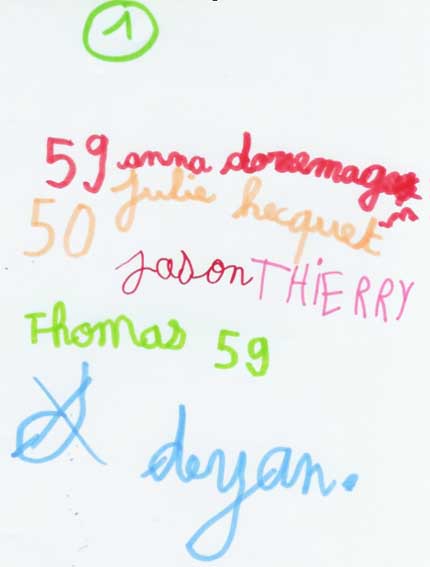 1
59 anna
50 julie hecquet
Jason THiERRY
Thomas 59
deyan.